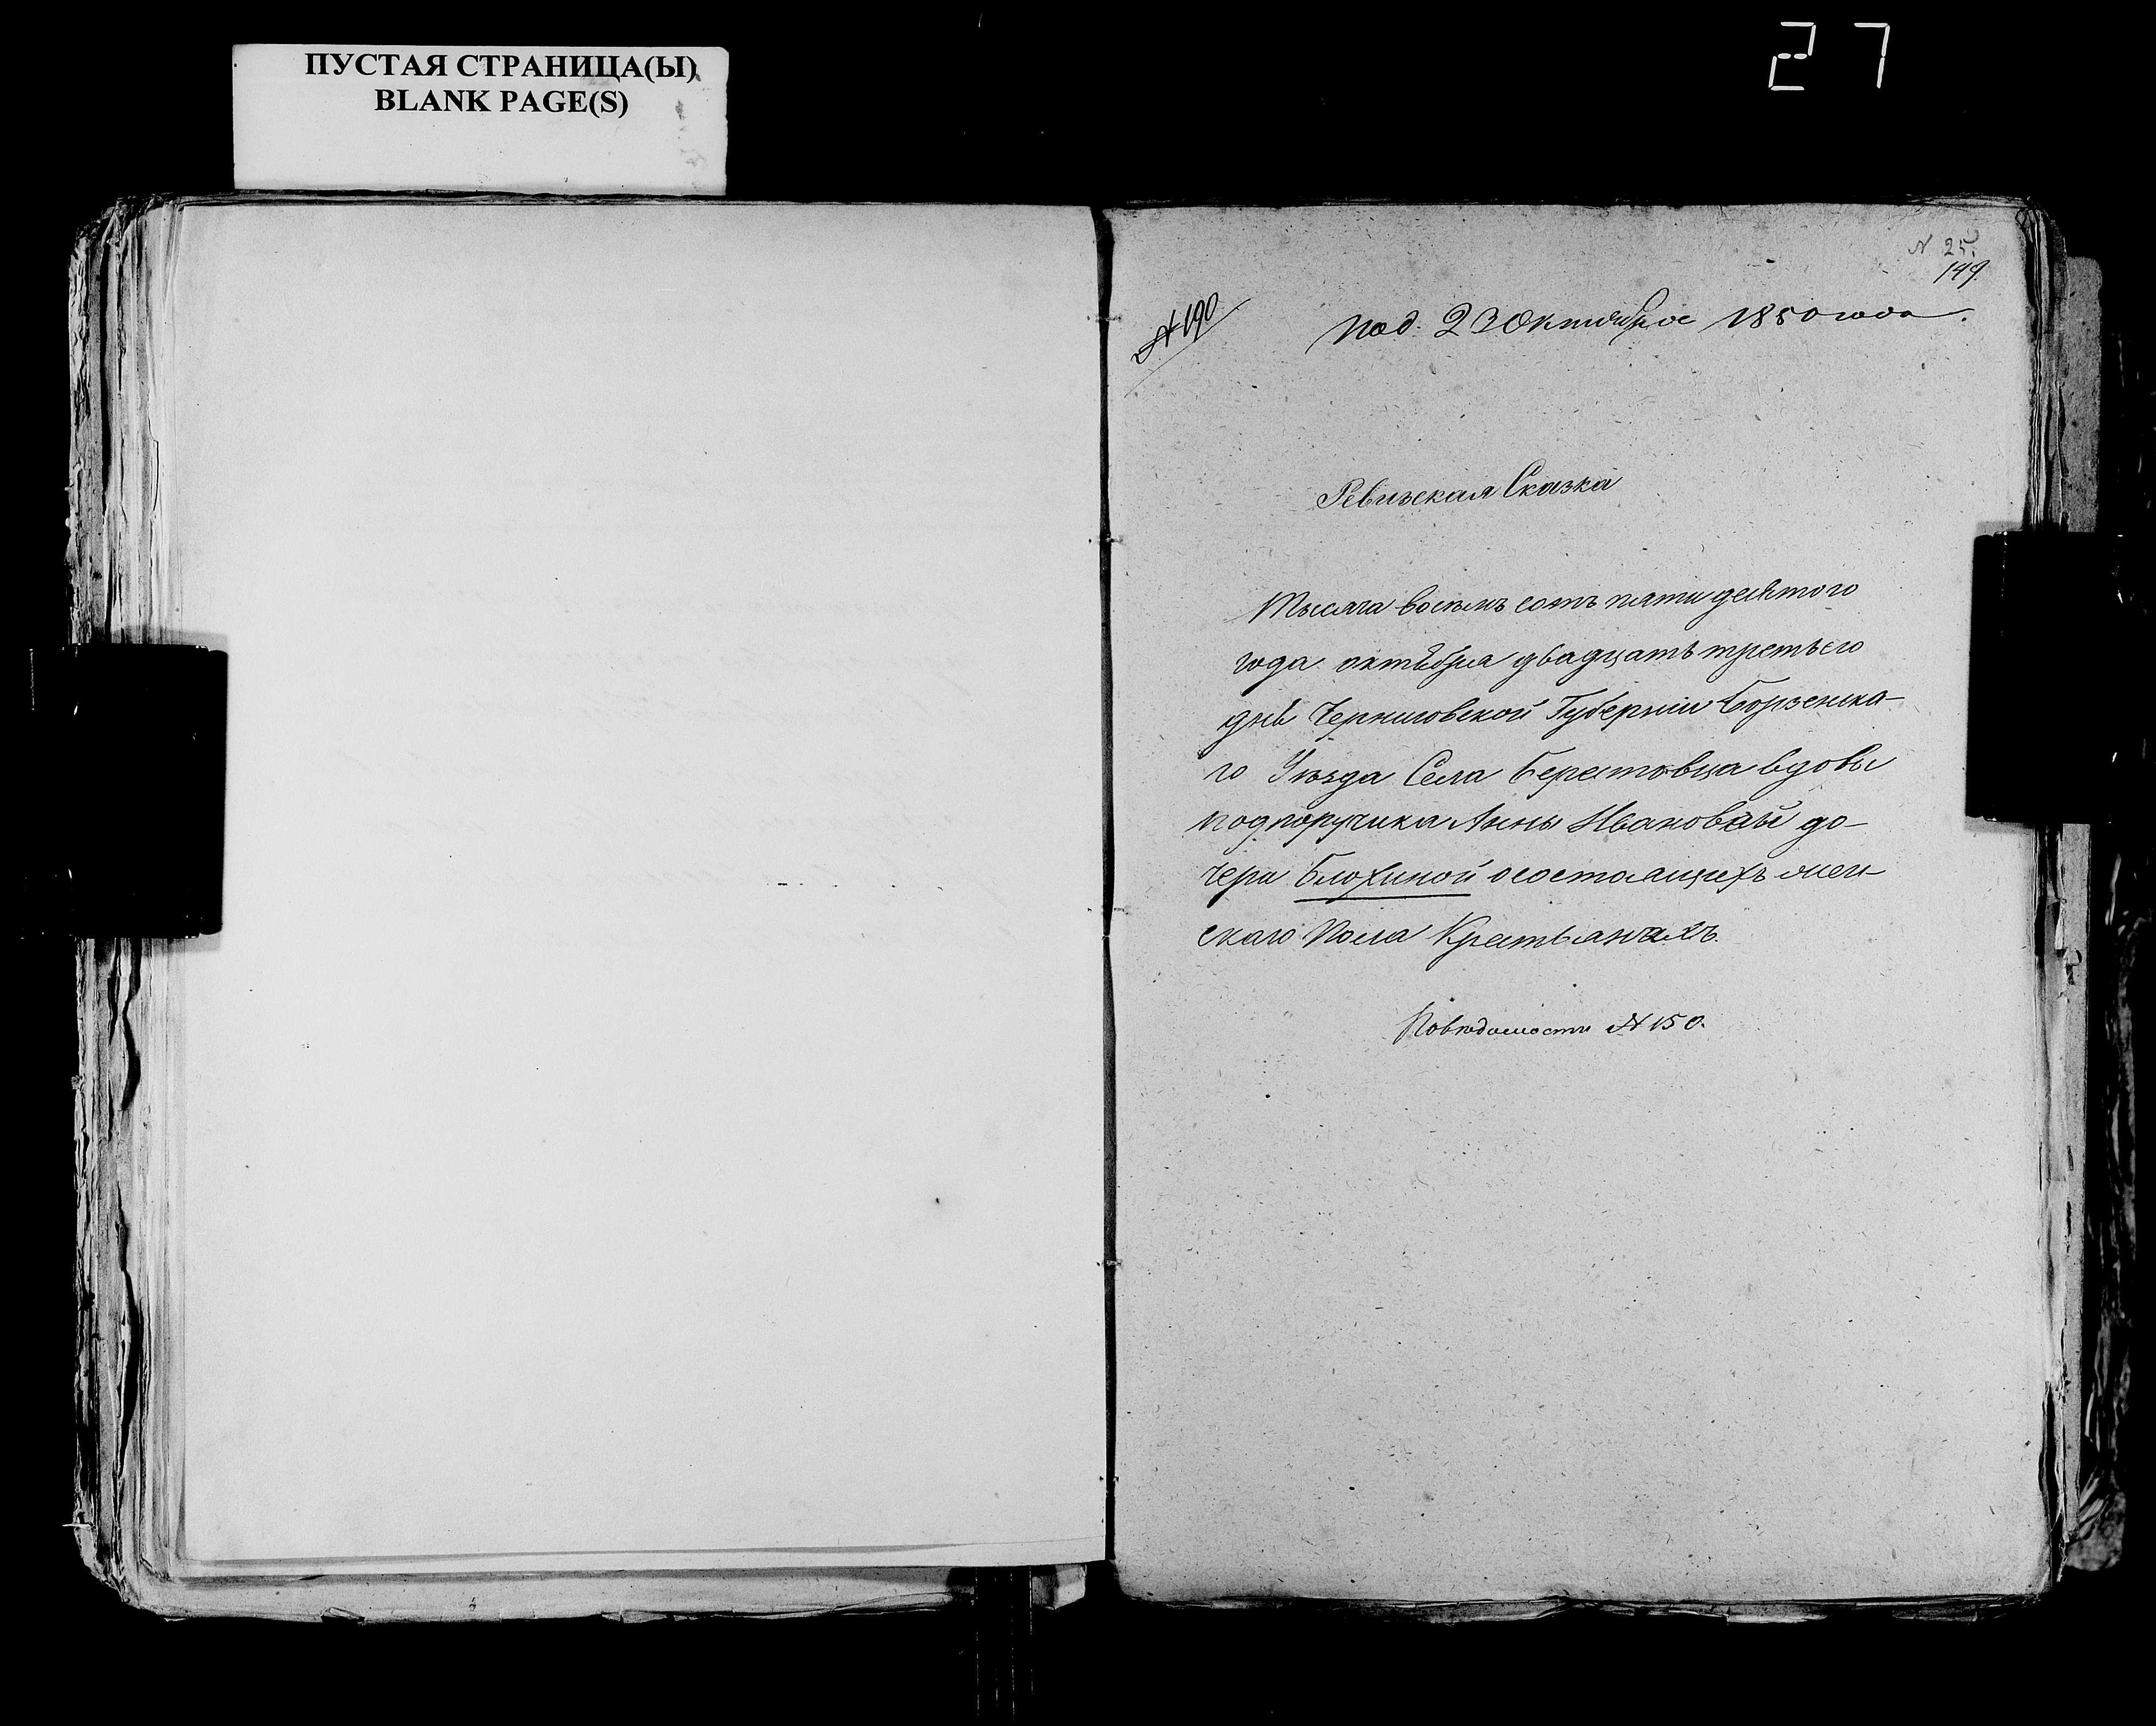 ПУСТАЯ СТРАНИЦА(Ы)
BLANK PAGE(S)
27
N 25.
149
№ 190
под. 23 Октября 1850 года.
Ревизская Сказка
Тысяча восемь сотъ пяти десятого
года октября двадцать третьего
дня Черниговской Губернии Борзенска-
го Уѣзда Села Берестовца вдовы
подпоручика Анны Ивановой до-
чери Блохиной о состоящихъ
скаго Пола Крестьянахъ.
По вѣдомости № 150.